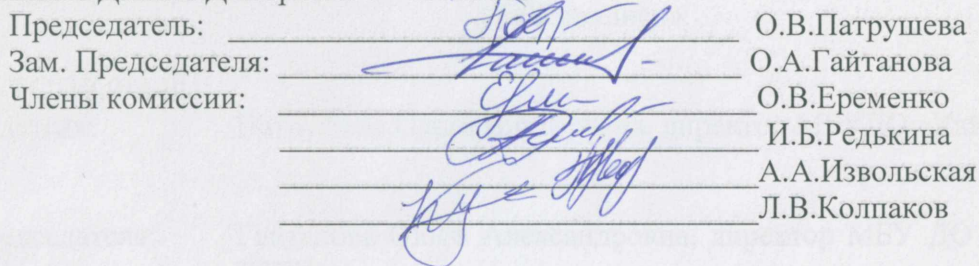 Председатель: О.В.Патрушева
Зам. Председателя: О.А.Гайтанова
Члены комиссии: О.В.Еременко
И.Б.Редькина
А.А.Извольская
Л.В.Колпаков